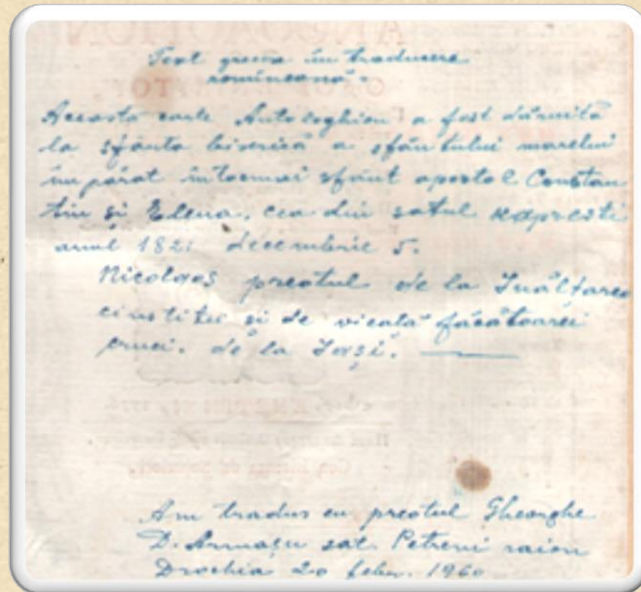 Text grecesc în traducere
romîneană.
Aceasta carte Antologhion a fost dăruită
la sfânta biserică a sfântului marelui
împărat întocmai sfânt apostol Constan
tin și Elena, cea din satul
anul 182 decembrie 5.
Nicolaos preotul de la Înălțarea
cinstitei și de vieață făcătoarei
cruci. de la Iași.
Am tradus eu preotul Gheorghe
D. Armașu sat. Petreni raion
Drochia 20 febr. 1960